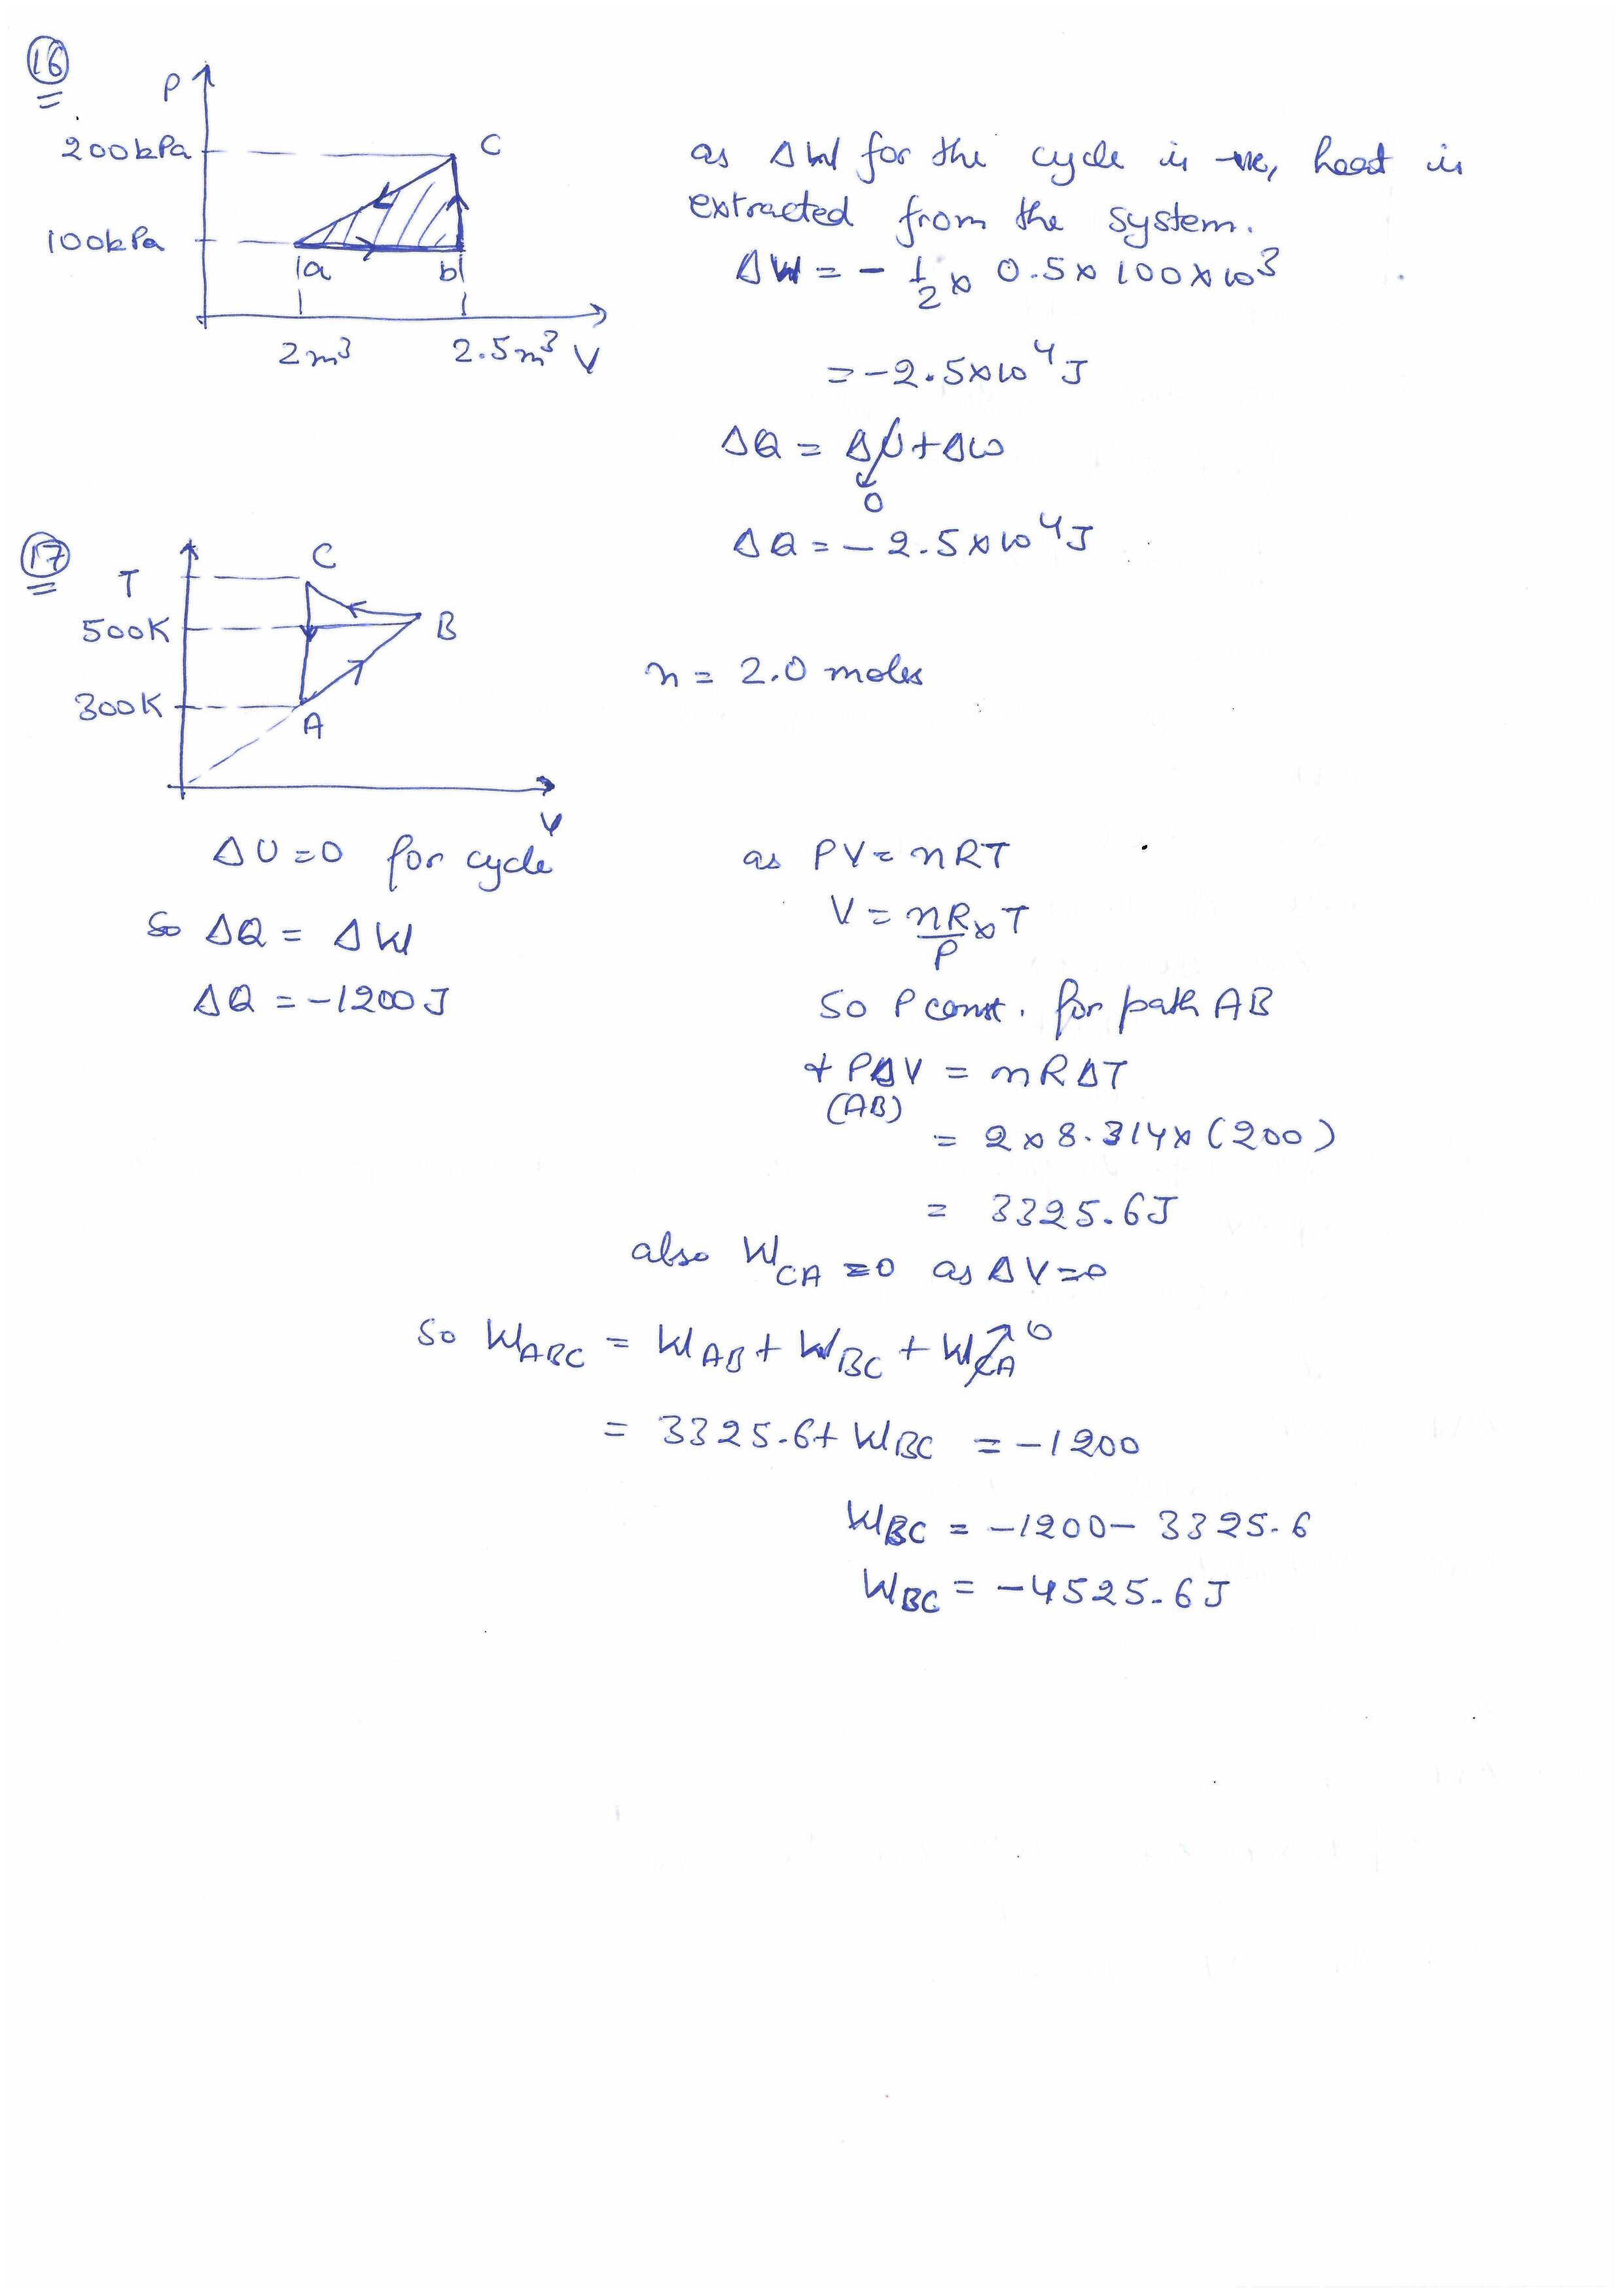 16
P
200kPa
C
100kPa
a
b
2m³
2.5m³ V
as ΔW for the cycle is -ve, heat is
extracted from the system.
ΔW = - 1/2 × 0.5 × 100 × 10³
= -2.5×10⁴J
ΔQ = ΔU + ΔW
0
ΔQ = -2.5×10⁴J
17
C
T
500K
B
300K
A
V
n = 2.0 moles
ΔU=0 for cycle
So ΔQ = ΔW
ΔQ = -1200J
as PV = nRT
V = nR/P × T
So P const. for path AB
+ PΔV = nRΔT
(AB)
= 2 × 8.314 × (200)
= 3325.6J
also W_CA = 0 as ΔV=0
So W_ABC = W_AB + W_BC + W_CA 0
= 3325.6 + W_BC = -1200
W_BC = -1200 - 3325.6
W_BC = -4525.6J